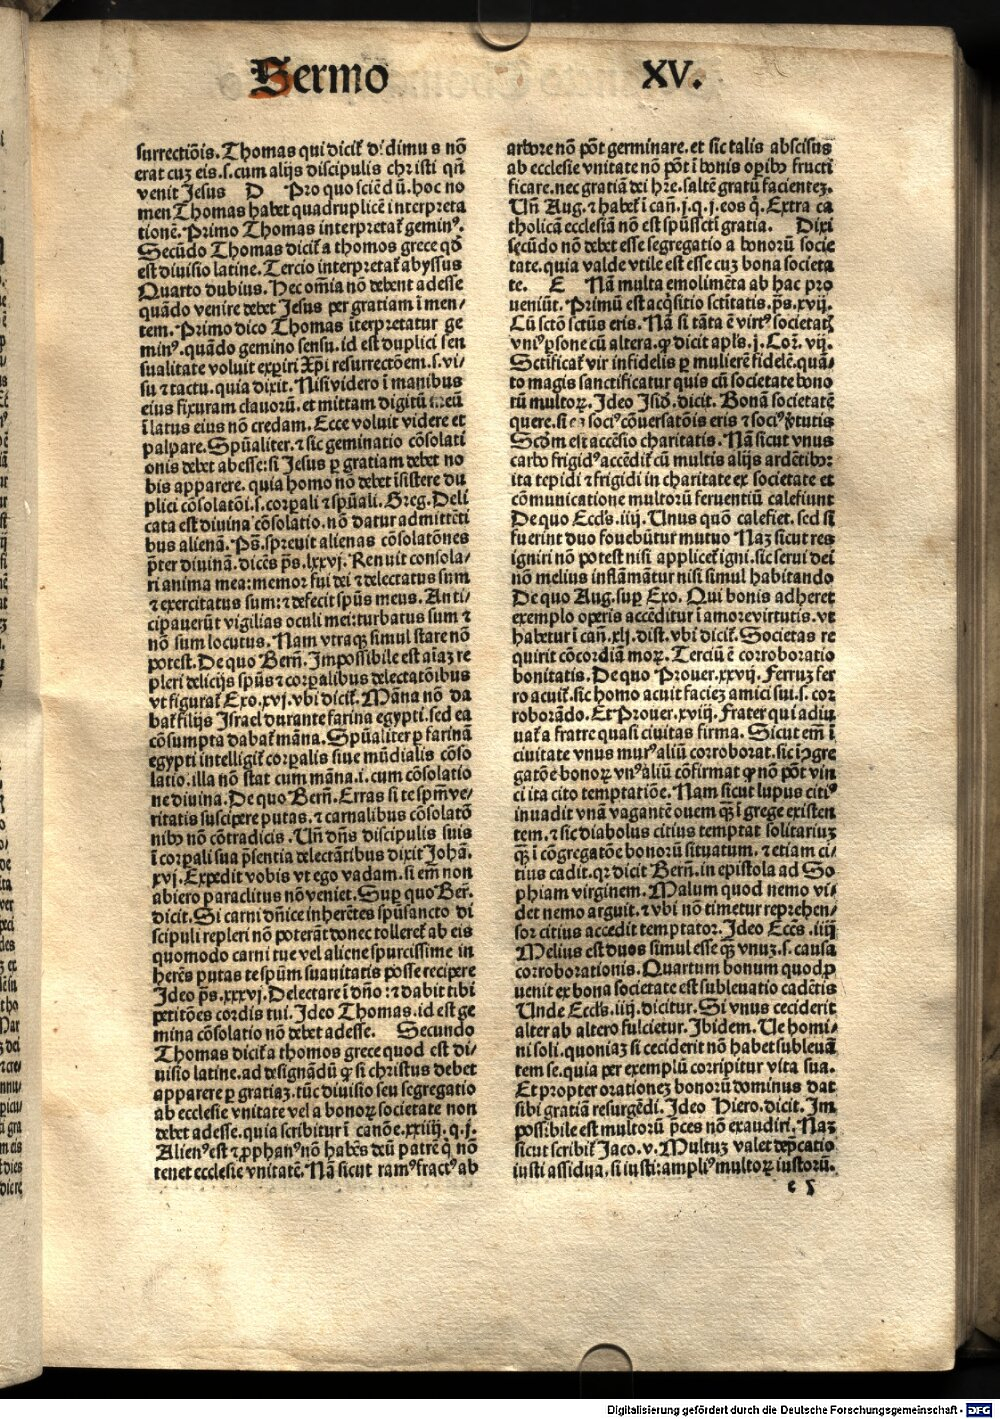 Sermo XV.
surrectiōis. Thomas qui dicit᷑ didimus nō
erat cuȝ eis.s.cum alijs discipulis christi qn̄
venit Jesus D Pro quo sciēdū. hoc no
men Thomas habet quadruplicē interpreta
tionē. Primo Thomas interpretat᷑ geminꝰ.
Secūdo Thomas dicit᷑ a thomos grece qd̓
est diuisio latine. Tercio interpretat᷑ abyssus
Quarto dubius. Hec om̄ia nō debent adesse
quādo venire debet Jesus per gratiam ī men⸗
tem. Primo dico Thomas īterpretatur ge
minꝰ. quādo gemino sensu. id est duplici sen
sualitate voluit experiri Xp̄i resurrectōem.s.vi⸗
su ⁊ tactu. quia dixit. Nisi videro ī manibus
eius fixuram clauorū. et mittam digitū meū
ī latus eius nō credam. Ecce voluit videre et
palpare. Spūaliter. ⁊ sic geminatio cōsolati
onis debet abesse: si Jesus ꝑ gratiam debet no
bis apparere. quia homo nō debet īsistere du
plici cōsolatōi.s.corpali ⁊ spūali. Greg. Deli
cata est diuina cōsolatio. nō datur admittēti
bus alienā. Pō. spreuit alienas cōsolatōnes
p̄ter diuinā. dicēs ps̄.lxxvj. Renuit consola⸗
ri anima mea: memor fui dei ⁊ delectatus sum
⁊ exercitatus sum: ⁊ defecit spūs meus. Anti⸗
cipauerūt vigilias oculi mei: turbatus sum ⁊
nō sum locutus. Nam vtraqȝ simul stare nō
potest. De quo Bern̄. Impossibile est aīaȝ re
pleri delicijs spūs ⁊ corpalibus delectatōibus
vt figurat᷑ Exo.xvj. vbi dicit᷑. Māna nō da
bat᷑ filijs Israel durante farina egypti. sed ea
cōsumpta dabat᷑ māna. Spūaliter ꝑ farinā
egypti intelligit᷑ corpalis siue mūdialis cōso
latio. illa nō stat cum māna.i.cum cōsolatio
ne diuina. De quo Bern̄. Erras si te spm̄ ve⸗
ritatis suscipere putas. ⁊ carnalibus cōsolatō
nibȝ nō cōtradicis. Un̄ dn̄s discipulis suis
ī corpali sua p̄sentia delectātibus dixit Johā.
xvj. Expedit vobis vt ego vadam. si em̄ non
abiero paraclitus nō veniet. Sup quo Ber̄.
dicit. Si carni dn̄ice inherētes spūsancto di
scipuli repleri nō poterāt donec tolleret᷑ ab eis
quomodo carni tue vel aliene spurcissime in
herēs putas te spūm suauitatis posse recipere
Ideo ps̄.xxxvj. Delectare ī dn̄o: ⁊ dabit tibi
petitōes cordis tui. Ideo Thomas.id est ge
mina cōsolatio nō debet adesse. Secundo
Thomas dicit᷑ a thomos grece quod est di⸗
uisio latine. ad designādū ꝙ si christus debet
apparere ꝑ gratiaȝ. tūc diuisio seu segregatio
ab ecclesie vnitate vel a bonoꝝ societate non
debet adesse. quia scribitur ī canōe.xxiiij.q.j.
Alienꝰ est ⁊ ꝓphanꝰ nō habēs deū patrē q̇ nō
tenet ecclesie vnitatē. Nā sicut ramꝰ fractꝰ ab
arbore nō pōt germinare. et sic talis abscisus
ab ecclesie vnitate nō pōt ī bonis opībȝ fructi
ficare. nec gratiā dei hr̄e. saltē gratū facienteȝ.
Un̄ Aug. ⁊ habet᷑ ī can̄.j.q.j.eos q̇. Extra ca
tholicā ecclesiā nō est spūsscti gratia. Dixi
secūdo nō debet esse segregatio a bonorū socie
tate. quia valde vtile est esse cuȝ bona societa
te. E Nā multa emolimēta ab hac pro
ueniūt. Primū est acq̇sitio sctitatis. ps̄.xvij.
Cū sctō sctūs eris. Nā si tāta ē virtꝰ societatȝ
vniꝰ ꝑsone cū altera. ꝙ dicit apl̄s.j.Cor̄.vij.
Sctificat᷑ vir infidelis ꝑ mulierē fidelē. quā⸗
to magis sanctificatur quis cū societate bono
rū multoꝝ. Ideo Isid̓. dicit. Bonā societatē
quere. si em̄ sociꝰ cōuersatōis eris ⁊ sociꝰ v̓tutis
Scd̓m est accēsio charitatis. Nā sicut vnus
carbo frigidꝰ accēdit᷑ cū multis alijs ardētibȝ:
ita tepidi ⁊ frigidi in charitate ex societate et
cōmunicatione multorū feruentiū calefiunt
De quo Eccl̄s.iiij. Unus quō calefiet. sed si
fuerint duo fouebūtur mutuo Naȝ sicut res
igniri nō potest nisi applicet᷑ igni. sic serui dei
nō melius inflāmātur nisi simul habitando
De quo Aug. sup̄ Exo. Qui bonis adheret
exemplo operis accēditur ī amore virtutis. vt
habetur ī can̄.xlj. dist. vbi dicit᷑. Societas re
quirit cōcordiā moꝝ. Terciū ē corroboratio
bonitatis. De quo Prouer.xxvij. Ferruȝ fer
ro acuit᷑. sic homo acuit facieȝ amici sui.s.cor
roborādo. Et Prouer.xviij. Frater qui adiu
uat᷑ a fratre quasi ciuitas firma. Sicut em̄ ī
ciuitate vnus murꝰ aliū corroborat. sic ī ꝯgre
gatōe bonoꝝ vnꝰ aliū cōfirmat ꝙ nō pōt vin
ci ita cito temptatiōe. Nam sicut lupus citiꝰ
inuadit vnā vagantē ouem qȝ̄ ī grege existen
tem. ⁊ sic diabolus citius temptat solitariuȝ
qȝ̄ ī cōgregatōe bonorū situatum. ⁊ etiam ci⸗
tius cadit. qꝛ dicit Bern̄. in epistola ad So
phiam virginem. Malum quod nemo vi⸗
det nemo arguit. ⁊ vbi nō timetur reprehen⸗
sor citius accedit temptator. Ideo Eccēs.iiij
Melius est duos simul esse qȝ̄ vnuȝ.s. causa
corroborationis. Quartum bonum quod ꝓ
uenit ex bona societate est subleuatio cadētis
Unde Eccl̄s.iiij. dicitur. Si vnus ceciderit
alter ab altero fulcietur. Ibidem. Ue homi⸗
ni soli. quoniaȝ si ceciderit nō habet subleuā
tem se. quia per exemplū corripitur vita sua.
Et propter orationeȝ bonorū dominus dat
sibi gratiā resurgēdi. Ideo Hiero. dicit. Im
possibile est multorū p̄ces nō exaudiri. Naȝ
sicut scribit᷑ Jaco.v. Multuȝ valet dep̄catio
iusti assidua. si iusti: ampliꝰ multoꝝ iustorū.
e 5
Digitalisierung gefördert durch die Deutsche Forschungsgemeinschaft - DFG